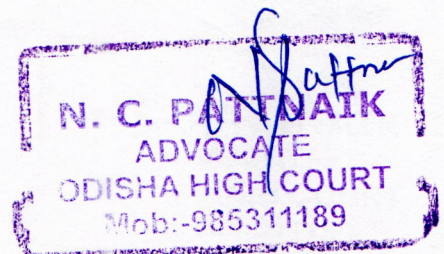 N. C. PATTNAIK
ADVOCATE
ODISHA HIGH COURT
Mob:-985311189